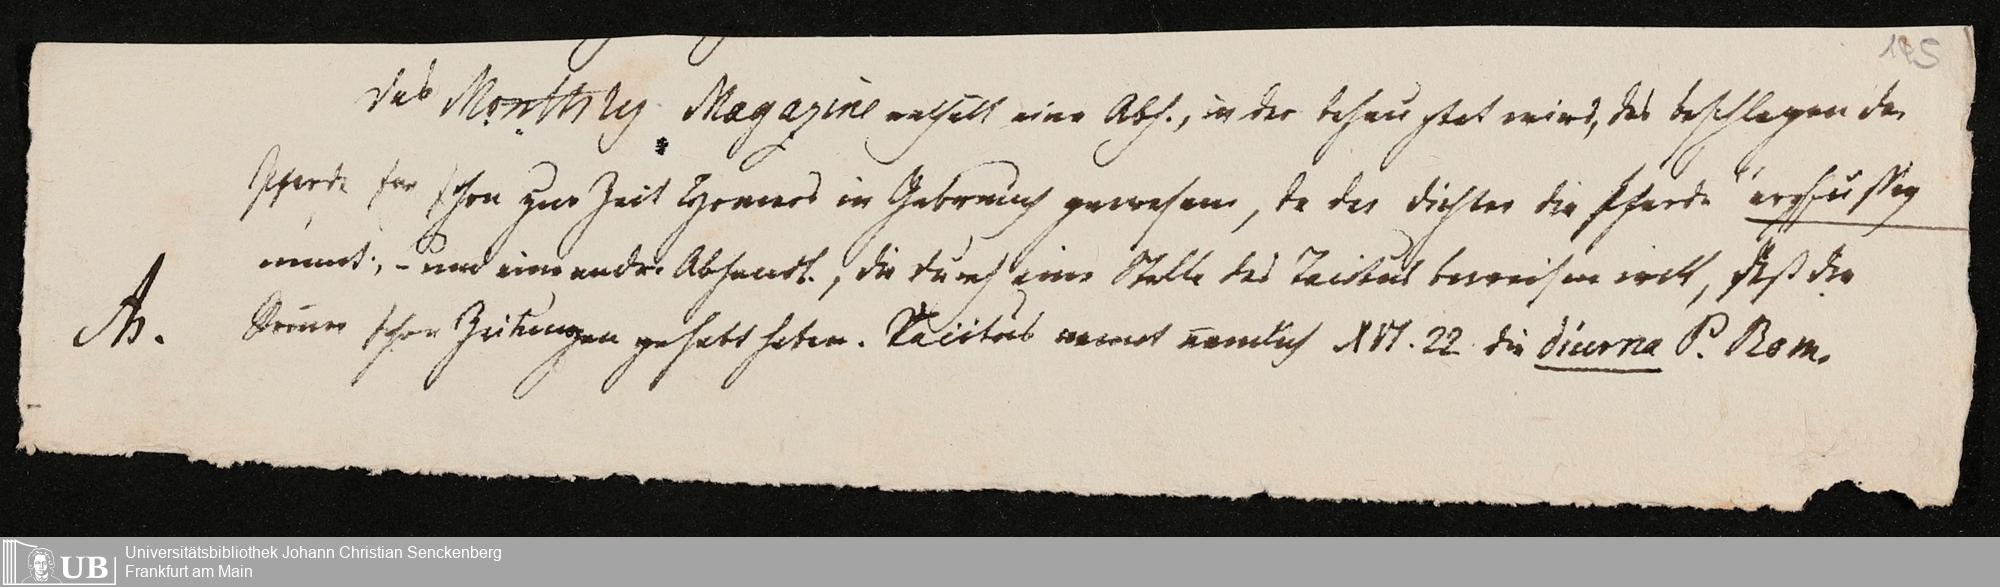 195
Das Monthly Magazine enthält eine Abh., in der behauptet wird, das beschlagen der
Pferde sey schon zur Zeit Homers in Gebrauch gewesen, da der Dichter die Pferde "erzfüssig
nennt., - und eine andre Abhandl., die durch eine Stelle des Tacitus beweisen will, daß die
Römer schon Zeitungen gehabt haben. Tacitus nennt nemlich XVI. 22 die diurna P. Rom.
UB
Universitätsbibliothek Johann Christian Senckenberg
Frankfurt am Main